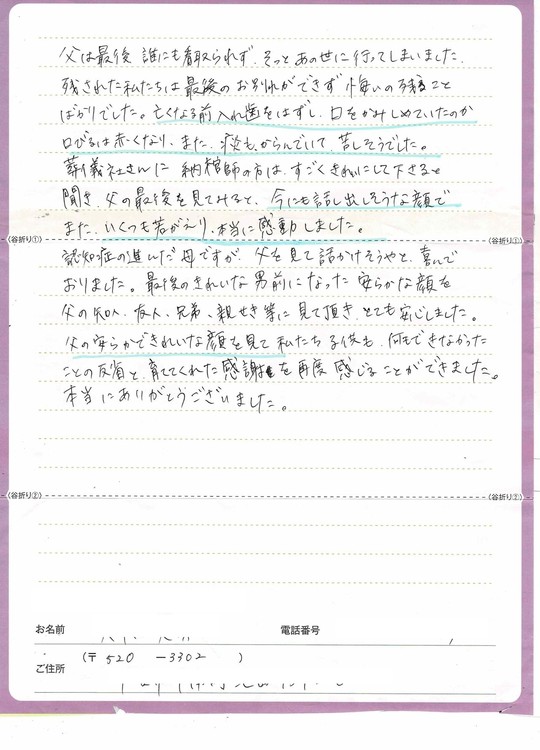 父は最後 誰にも看取られず、そっとあの世に行ってしまいました。
残された私たちは最後のお別れができず悔いの残ること
ばかりでした。亡くなる前入れ歯をはずし、口をかみしめていたのか
口びるは赤くなり、また、痰もからんでいて、苦しそうでした。
葬儀社さんに納棺師の方は、すごくきれいにして下さると
聞き、父の最後を見てみると、今にも話し出しそうな顔で
また、いくつも若がえり、本当に感動しました。
(谷折り①) (谷折り①)
認知症の進んだ母ですが、父を見て話かけそうやと、喜んで
おりました。最後のきれいな男前になった安らかな顔を
父の知人、友人、兄弟、親せき等に見て頂き、とても安心しました。
父の安らかできれいな顔を見て私たち子供も、何もできなかった
ことの反省と、育ててくれた感謝を再度感じることができました。
本当にありがとうございました。
(谷折り②) (谷折り②)
お名前 電話番号
(〒520-3302)
ご住所